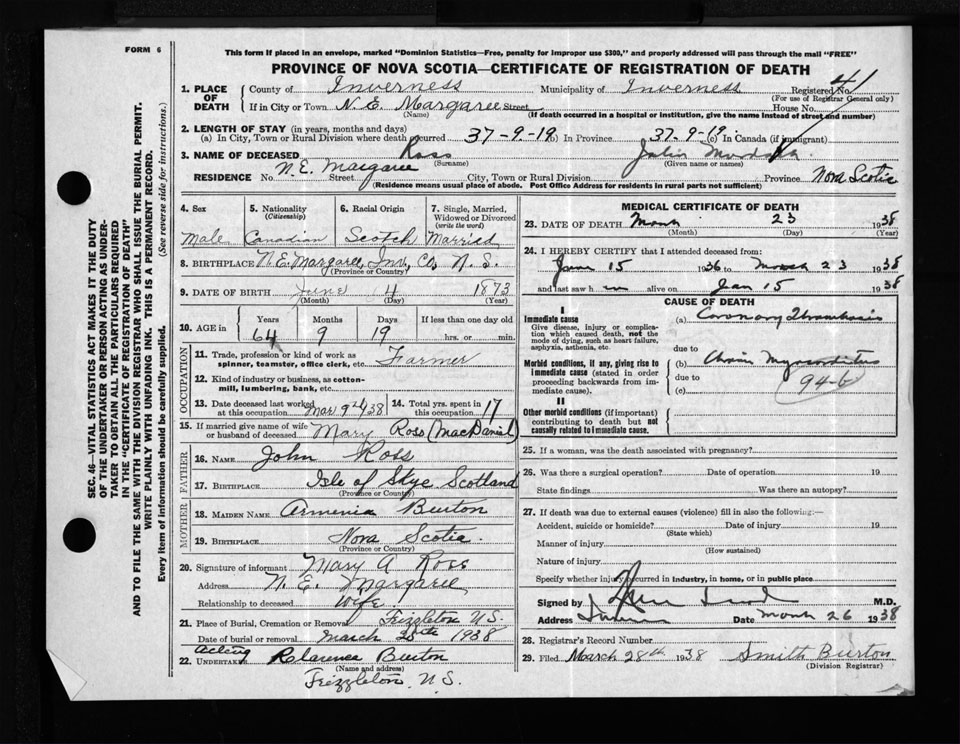 FORM 6
This form if placed in an envelope, marked "Dominion Statistics—Free, penalty for improper use $300," and properly addressed will pass through the mail "FREE"
PROVINCE OF NOVA SCOTIA—CERTIFICATE OF REGISTRATION OF DEATH
1. PLACE OF DEATH
County of Inverness Municipality of Inverness Registered No. 41
(For use of Registrar General only)
If in City or Town N.E. Margaree Street House No.
(Name) (If death occurred in a hospital or institution, give the name instead of street and number)
2. LENGTH OF STAY (in years, months and days)
(a) In City, Town or Rural Division where death occurred 37-9-19 (b) In Province 37-9-19 (c) In Canada (if immigrant)
3. NAME OF DECEASED Ross John
(Surname) (Given name or names)
RESIDENCE No. N.E. Margaree Street City, Town or Rural Division Province Nova Scotia
(Residence means usual place of abode. Post Office Address for residents in rural parts not sufficient)
4. Sex Male
5. Nationality (Citizenship) Canadian
6. Racial Origin Scotch
7. Single, Married, Widowed or Divorced (write the word) Married
8. BIRTHPLACE N.E. Margaree, Inv. Co. N.S.
(Province or Country)
9. DATE OF BIRTH June 4 1873
(Month) (Day) (Year)
10. AGE in Years Months Days If less than one day old
64 9 19 hrs. or min.
OCCUPATION
11. Trade, profession or kind of work as spinner, teamster, office clerk, etc. Farmer
12. Kind of industry or business, as cotton-mill, lumbering, bank, etc.
13. Date deceased last worked at this occupation Mar 9th /38
14. Total yrs. spent in this occupation 17
15. If married give name of wife or husband of deceased Mary Ross (MacDaniel)
FATHER
16. NAME John Ross
17. BIRTHPLACE Isle of Skye Scotland
(Province or Country)
MOTHER
18. MAIDEN NAME Armenia Burton
19. BIRTHPLACE Nova Scotia.
(Province or Country)
20. Signature of informant Mary A Ross
Address N.E. Margaree
Relationship to deceased Wife
21. Place of Burial, Cremation or Removal Frizzleton N.S.
Date of burial or removal March 25th 1938
22. Acting UNDERTAKER Burton
(Name and address)
Frizzleton, N.S.
MEDICAL CERTIFICATE OF DEATH
23. DATE OF DEATH March 23 1938
(Month) (Day) (Year)
24. I HEREBY CERTIFY that I attended deceased from:
June 15 1936 to March 23 1938
and last saw h im alive on Jan 15 1938
CAUSE OF DEATH
I
Immediate cause
Give disease, injury or complication which caused death, not the mode of dying, such as heart failure, asphyxia, asthenia, etc.
(a) Coronary Thrombosis
due to
Morbid conditions, if any, giving rise to immediate cause (stated in order proceeding backwards from immediate cause).
(b) Chronic Myocarditis
due to 94-b
(c)
II
Other morbid conditions (if important) contributing to death but not causally related to immediate cause.
25. If a woman, was the death associated with pregnancy?
26. Was there a surgical operation? Date of operation 19
State findings Was there an autopsy?
27. If death was due to external causes (violence) fill in also the following:—
Accident, suicide or homicide? Date of injury 19
(State which)
Manner of injury
(How sustained)
Nature of injury
Specify whether injury occurred in industry, in home, or in public place
Signed by M.D.
Address Date March 26 1938
28. Registrar's Record Number
29. Filed March 28th 1938 Smith Burton
(Division Registrar)
SEC. 46—VITAL STATISTICS ACT MAKES IT THE DUTY
OF THE UNDERTAKER OR PERSON ACTING AS UNDER-
TAKER TO OBTAIN ALL THE PARTICULARS REQUIRED
IN THE "CERTIFICATE OF REGISTRATION OF DEATH"
AND TO FILE THE SAME WITH THE DIVISION REGISTRAR WHO SHALL ISSUE THE BURIAL PERMIT.
WRITE PLAINLY WITH UNFADING INK. THIS IS A PERMANENT RECORD.
Every item of information should be carefully supplied. (See reverse side for instructions.)